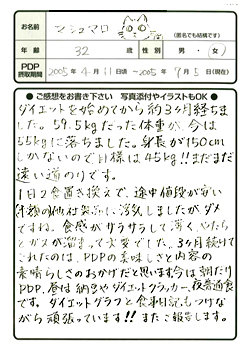 お名前 マシュマロ
(匿名でも結構です)
年齢 32 歳 性別 男・女
PDP摂取期間 2005年4月11日頃~2005年7月5日(現在)
●ご感想をお書き下さい 写真添付やイラストもOK●
ダイエットを始めてから約3ヶ月経ちま
した。59.5kgだった体重が、今は
55kgに落ちました。身長が150cm
しかないので目標は45kg!!まだまだ
遠い道のりです。
1日2食置き換えで、途中値段が安い
他社製品に浮気しましたがダメ
ですね。食感がザラザラして濃く、やたら
とガスが溜まって大変でした。3ヶ月続けて
これたのは、PDPの美味しさと内容の
素晴らしさのおかげだと思います。今は朝だけ
PDP、昼は納豆やダイエットクラッカー、夜普通食
です。ダイエットグラフと食事日記もつけな
がら頑張っています!!またご報告します。